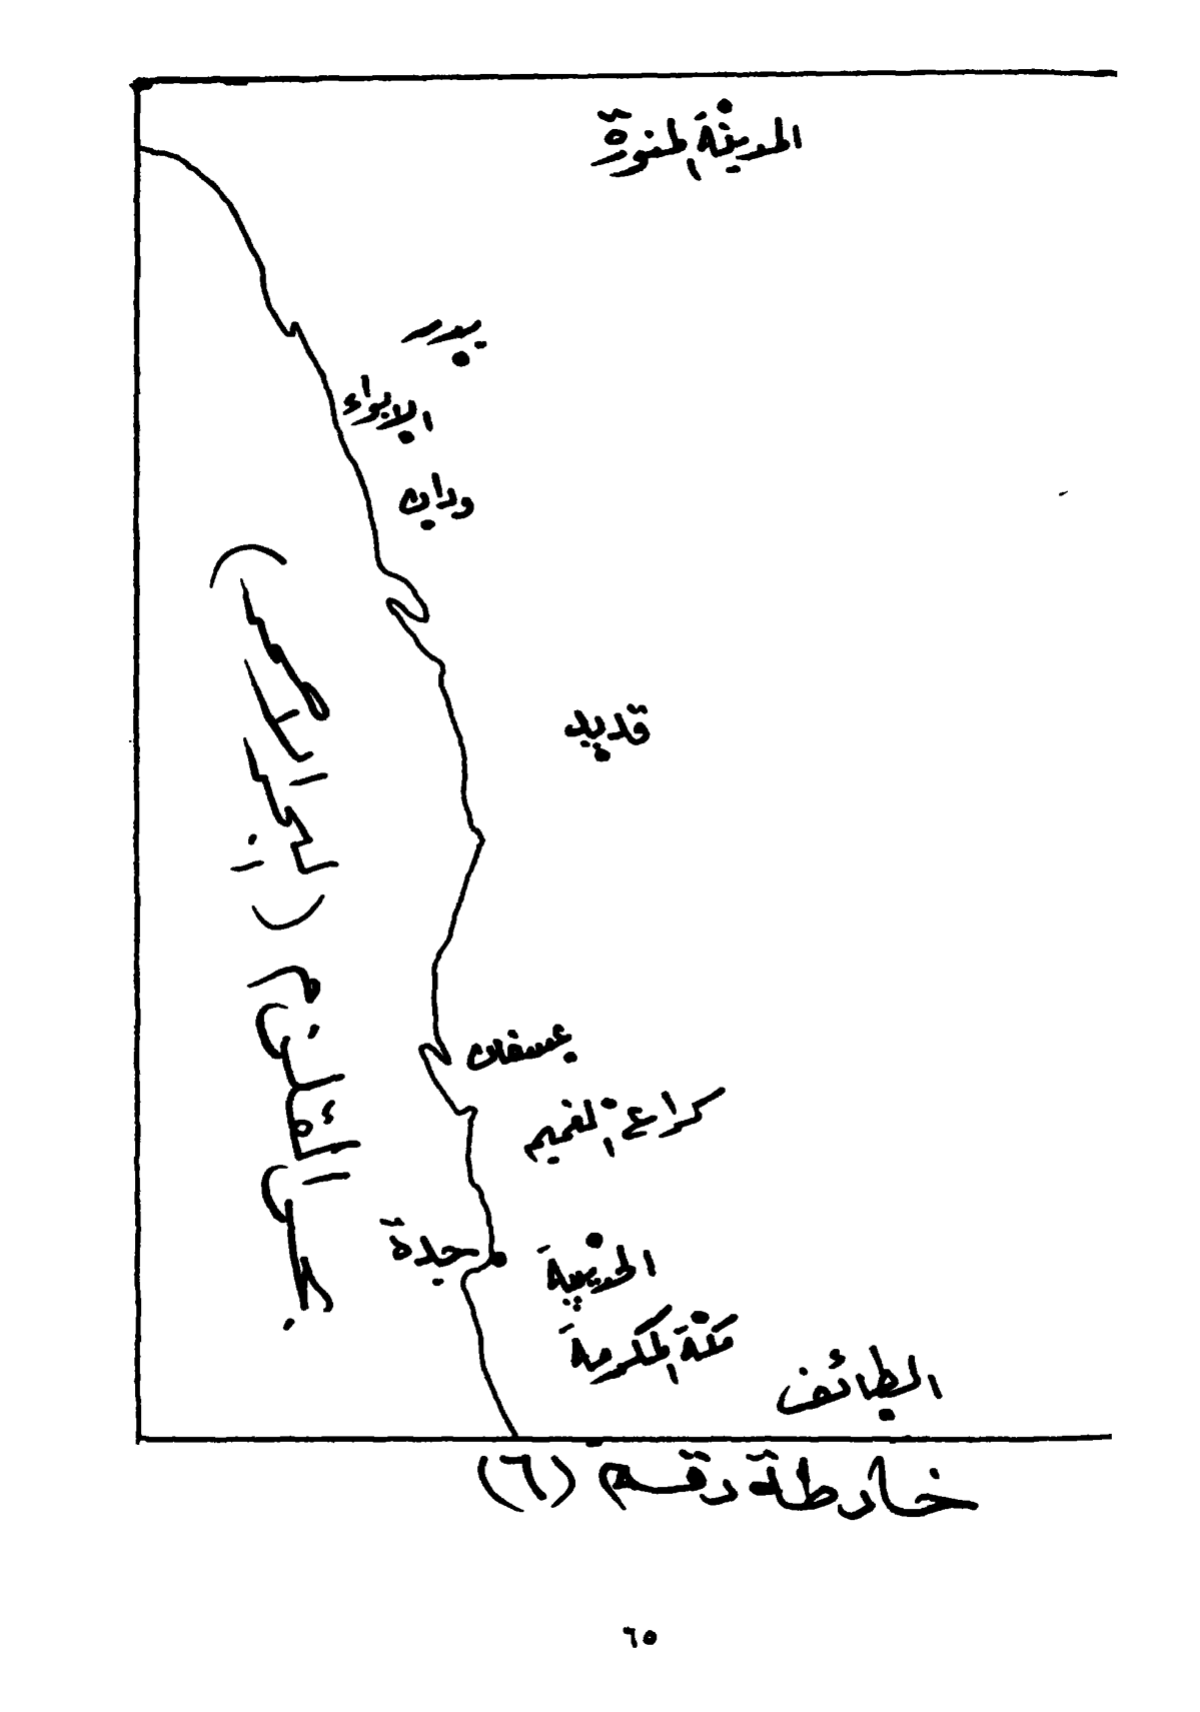 المدينة المنورة
بدر
الابواء
ودان
قديد
بحر القلزم (البحر الاحمر)
عسفان
كراع الغميم
جدة
الحديبية
مكة المكرمة
الطائف
خارطة رقم (٦)
٦٥